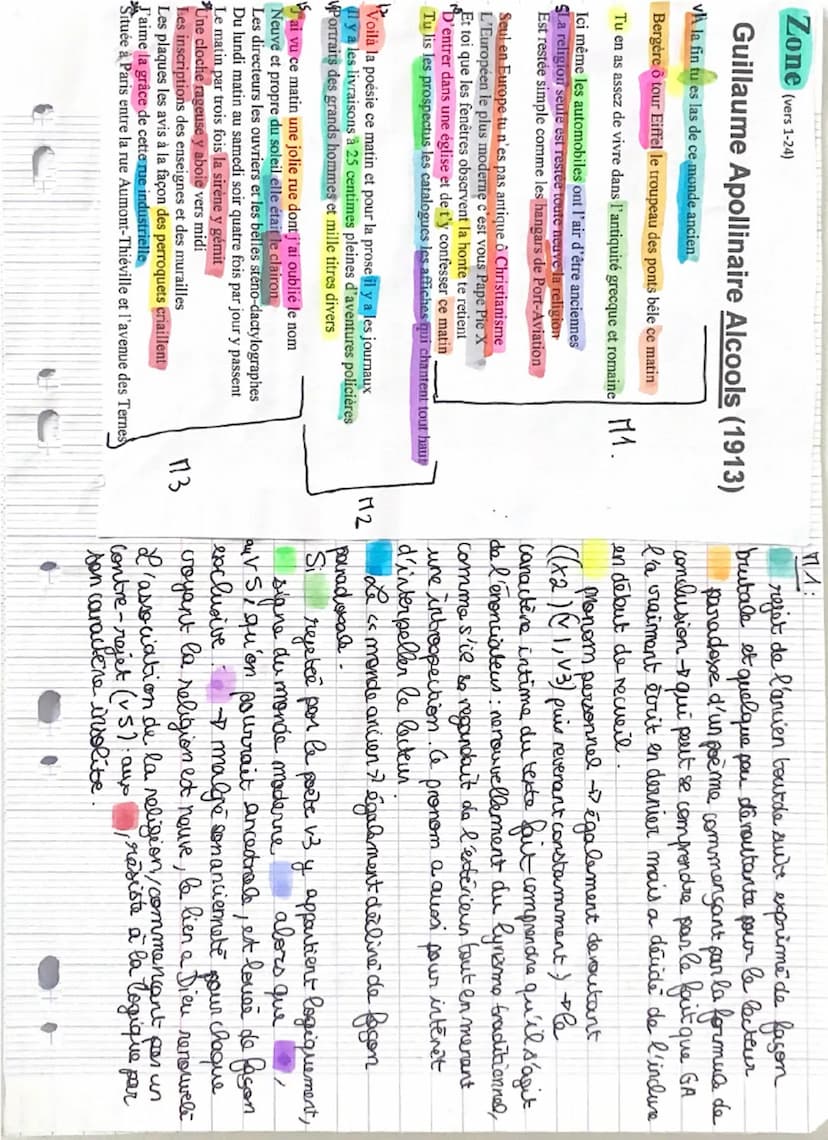 Zone (vers 1-24)
Guillaume Apollinaire Alcools (1913)
V1
A la fin tu es las de ce monde ancien
Bergère ô tour Eiffel le troupeau des ponts bêle ce matin
Tu en as assez de vivre dans l'antiquité grecque et romaine
Ici même les automobiles ont l'air d'être anciennes
5 La religion seule est restée toute neuve la religion
Est restée simple comme les hangars de Port-Aviation
Seul en Europe tu n'es pas antique ô Christianisme
L'Européen le plus moderne c'est vous Pape Pie X
Et toi que les fenêtres observent la honte te retient
10 D'entrer dans une église et de t'y confesser ce matin
Tu lis les prospectus les catalogues les affiches qui chantent tout haut
12 Voilà la poésie ce matin et pour la prose il y a les journaux
Il y a les livraisons à 25 centimes pleines d'aventures policières
Portraits des grands hommes et mille titres divers
15 J'ai vu ce matin une jolie rue dont j'ai oublié le nom
Neuve et propre du soleil elle était le clairon
Les directeurs les ouvriers et les belles sténo-dactylographes
Du lundi matin au samedi soir quatre fois par jour y passent
Le matin par trois fois la sirène y gémit
Une cloche rageuse y aboie vers midi
Les inscriptions des enseignes et des murailles
Les plaques les avis à la façon des perroquets criaillent
J'aime la grâce de cette rue industrielle
Située à Paris entre la rue Aumont-Thiéville et l'avenue des Ternes
M1.
M2
M3
M1 :
rejet de l'ancien tout de suite exprimé de façon
brutale et quelque peu déroutante pour le lecteur
paradoxe d'un poème commençant par la formule de
conclusion → qui peut se comprendre par le fait que GA
l'a vraiment écrit en dernier mais a décidé de l'inclure
en début de recueil.
pronom personnel → également déroutant
((x2) (v1, v3) puis revenant constamment) → le
caractère intime du texte fait comprendre qu'il s'agit
de l'énonciateur : renouvellement du lyrisme traditionnel,
comme s'il se regardait de l'extérieur tout en menant
une introspection. Ce pronom a aussi pour intérêt
d'interpeller le lecteur.
Le « monde ancien » également décliné de façon
paradoxale.
Si rejetée par le poète v3 y appartient logiquement,
signe du monde moderne alors que ,
au v5, qu'on pourrait ancestrale, est louée de façon
exclusive : → malgré son ancienneté pour chaque
croyant la religion est neuve, le lien a Dieu renouvelé
L'association de la religion/commençant par un
contre-rejet (v5) : aux , résiste à la logique par
son caractère insolite.